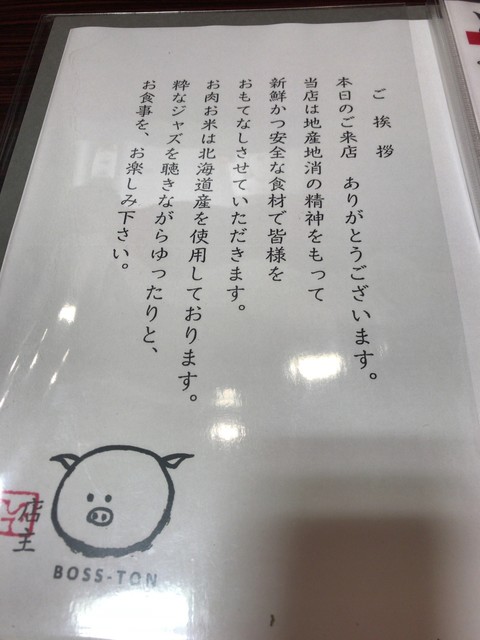 ご挨拶
本日のご来店　ありがとうございます。
当店は地産地消の精神をもって
新鮮かつ安全な食材で皆様を
おもてなしさせていただきます。
お肉お米は北海道産を使用しております。
粋なジャズを聴きながらゆったりと、
お食事を、お楽しみ下さい。
店主
BOSS-TON